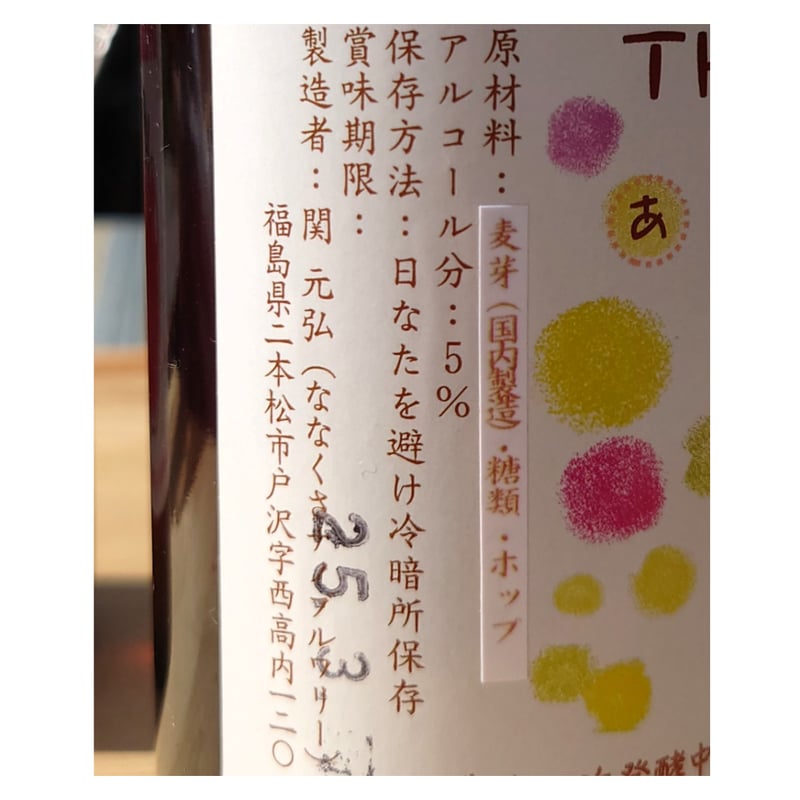 原材料：麦芽（国内製造）・糖類・ホップ
アルコール分：5%
保存方法：日なたを避け冷暗所保存
賞味期限：
25 3
製造者：関 元弘（ななくさナノブルワリー）
福島県二本松市戸沢字西高内一二〇
TH
あ
発酵中